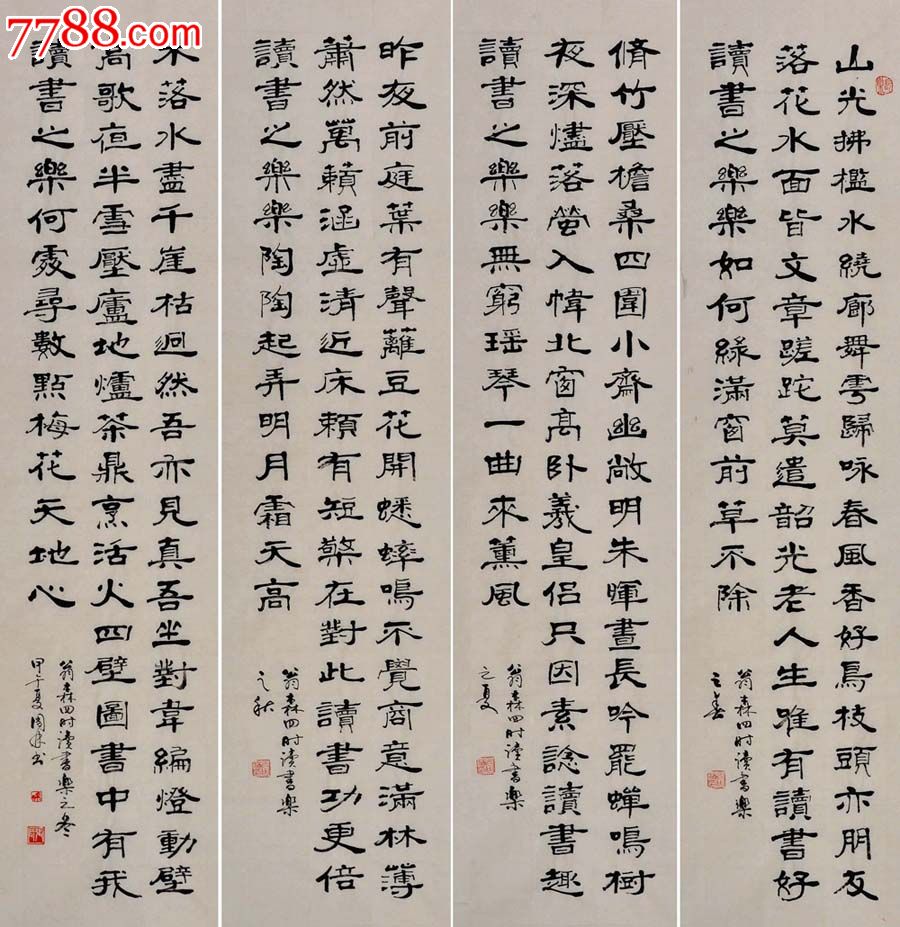 山光拂檻水繞廊舞雩歸咏春風香好鳥枝頭亦朋友
落花水面皆文章蹉跎莫遣韶光老人生唯有讀書好
讀書之樂樂如何綠滿窗前草不除
翁森四时读書樂
之春
脩竹壓檐桑四圍小齋幽敞明朱暉晝長吟罷蟬鳴樹
夜深燼落螢入幃北窗高卧羲皇侶只因素諗讀書趣
讀書之樂樂無窮瑶琴一曲來薰風
翁森四时读書樂
之夏
昨夜前庭葉有聲蘺豆花開蟋蟀鳴不覺商意滿林薄
蕭然萬籟涵虛清近床賴有短檠在對此讀書功更倍
讀書之樂樂陶陶起弄明月霜天高
翁森四时读書樂
之秋
木落水盡千崖枯迥然吾亦見真吾坐對韋編燈動壁
高歌夜半雪壓廬地爐茶鼎烹活火四壁圖書中有我
讀書之樂何處尋數點梅花天地心
翁森四时读書樂之冬
甲午夏周书
7788.com
收藏